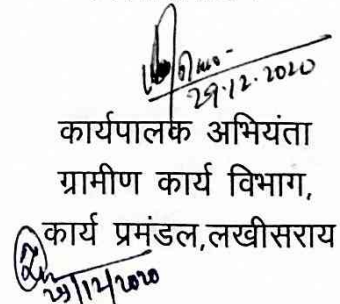 29.12.2020
कार्यपालक अभियंता
ग्रामीण कार्य विभाग,
कार्य प्रमंडल,लखीसराय
29/12/2020